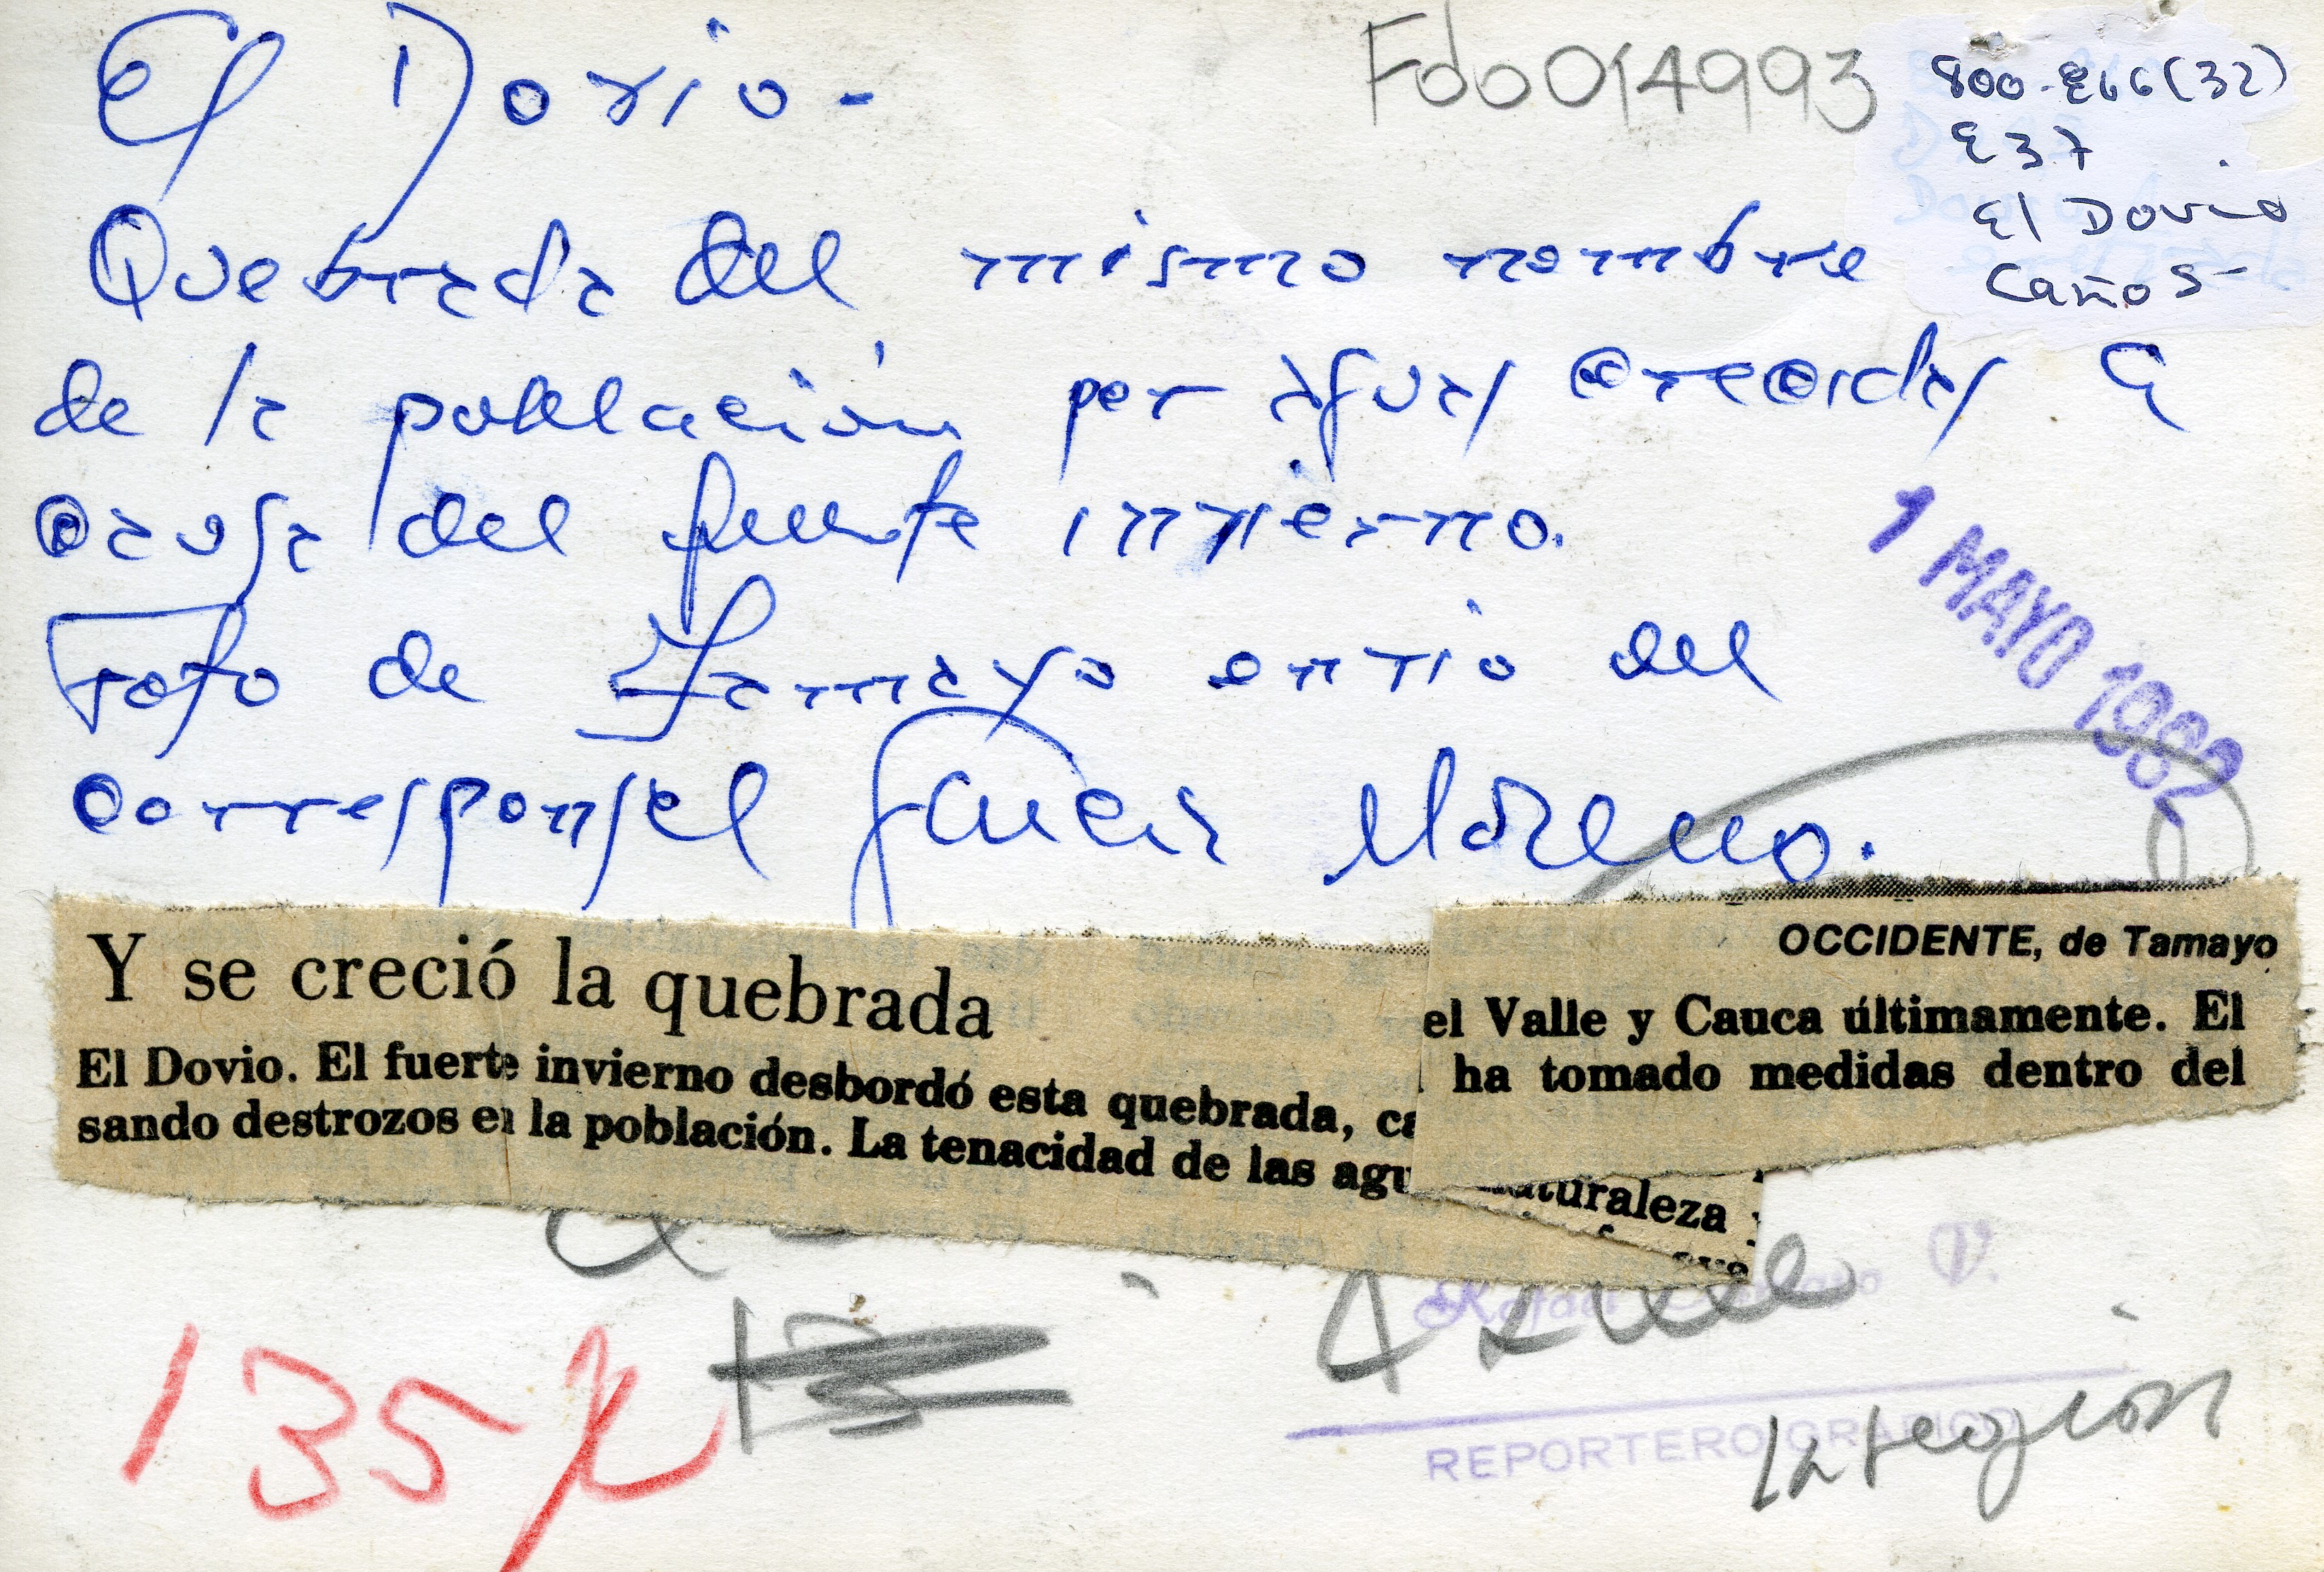 El Dovio-
Fdo014993
800-E66(32)
E37
El Dovio
Caños-
Quebrada del mismo nombre
de la población por aguas crecidas a
causa del fuerte invierno.
Foto de Tamayo envio del
corresponsal Moreno.
1 MAYO 1982
Y se creció la quebrada
El Dovio. El fuerte invierno desbordó esta quebrada, ca
sando destrozos en la población. La tenacidad de las agu
OCCIDENTE, de Tamayo
el Valle y Cauca últimamente. El
ha tomado medidas dentro del
naturaleza
135
Rafael Tamayo V.
REPORTERO GRAFICO
la región